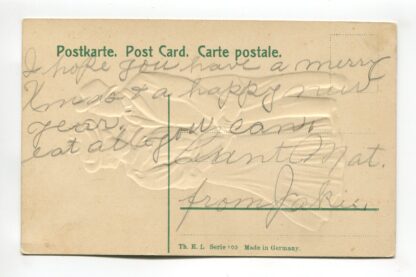 Postkarte. Post Card. Carte postale.
I hope you have a merry
Xmas & a happy new
year.
eat all you can.
Aunt Mat.
from Jakie.
Th. E. L. Serie Made in Germany.